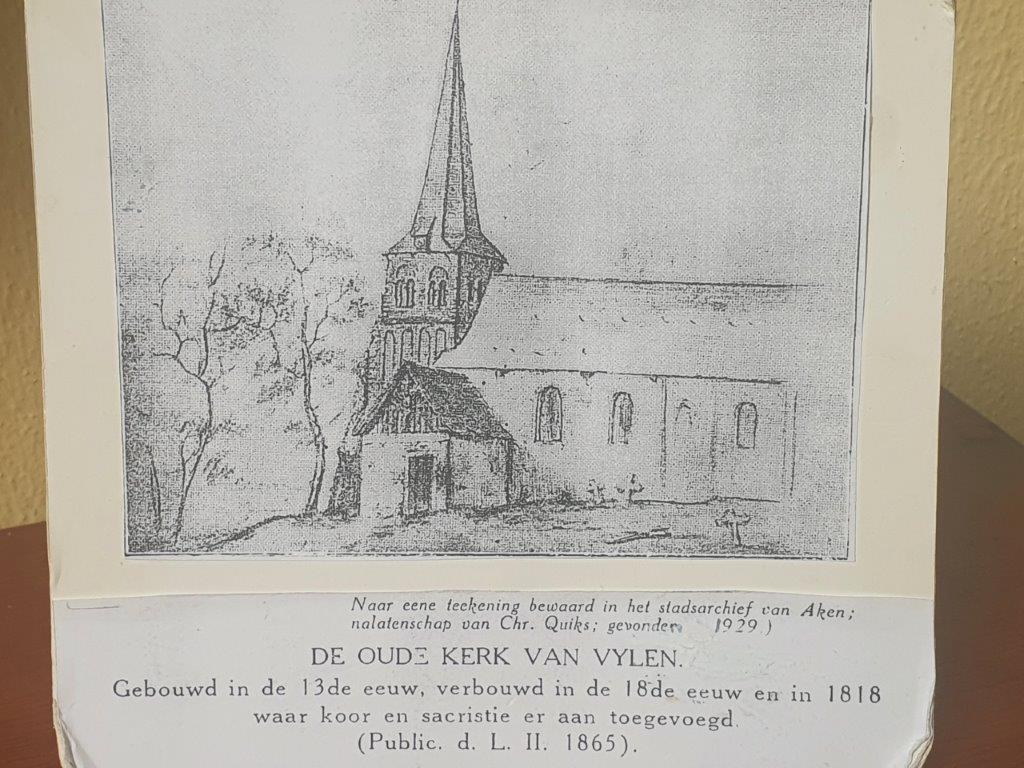 Naar eene teekening bewaard in het stadsarchief van Aken;
nalatenschap van Chr. Quiks; gevonden 1929.)
DE OUDE KERK VAN VYLEN.
Gebouwd in de 13de eeuw, verbouwd in de 18de eeuw en in 1818
waar koor en sacristie er aan toegevoegd.
(Public. d. L. II. 1865).